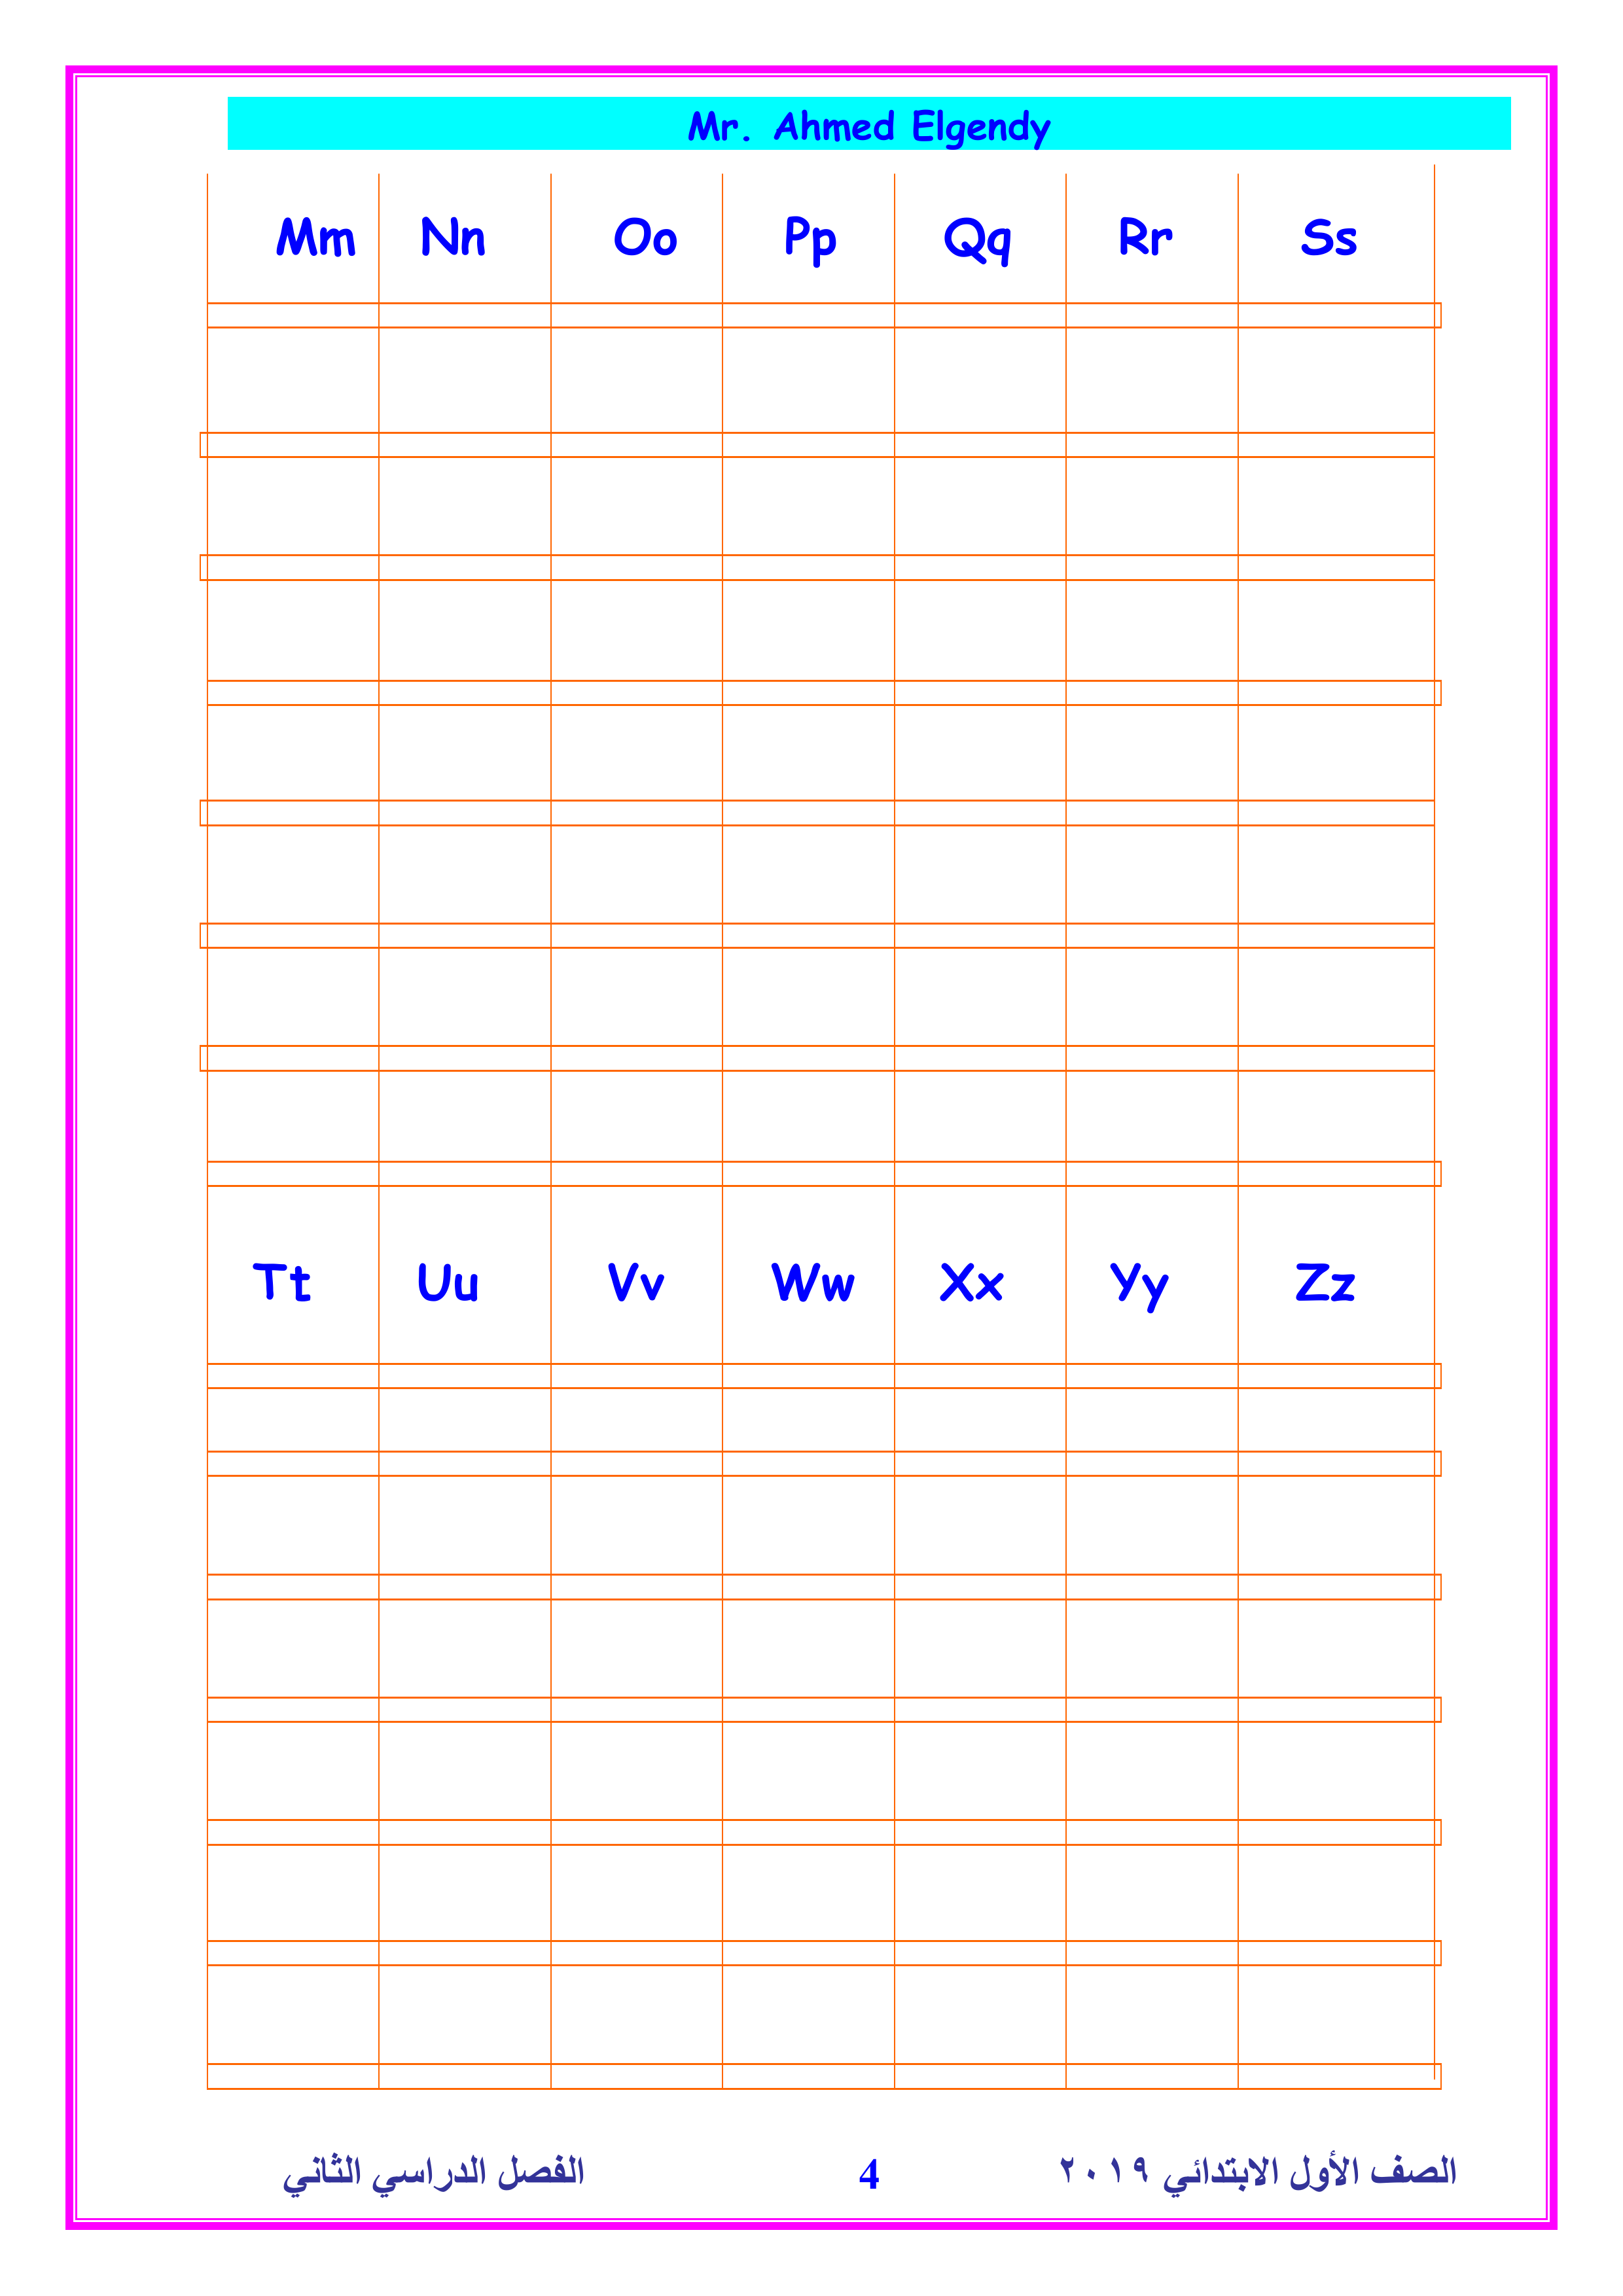 Mr. Ahmed Elgendy
Mm Nn Oo Pp Qq Rr Ss
Tt Uu Vv Ww Xx Yy Zz
الصف الأول الابتدائي ٢٠١٩ 4 الفصل الدراسي الثاني